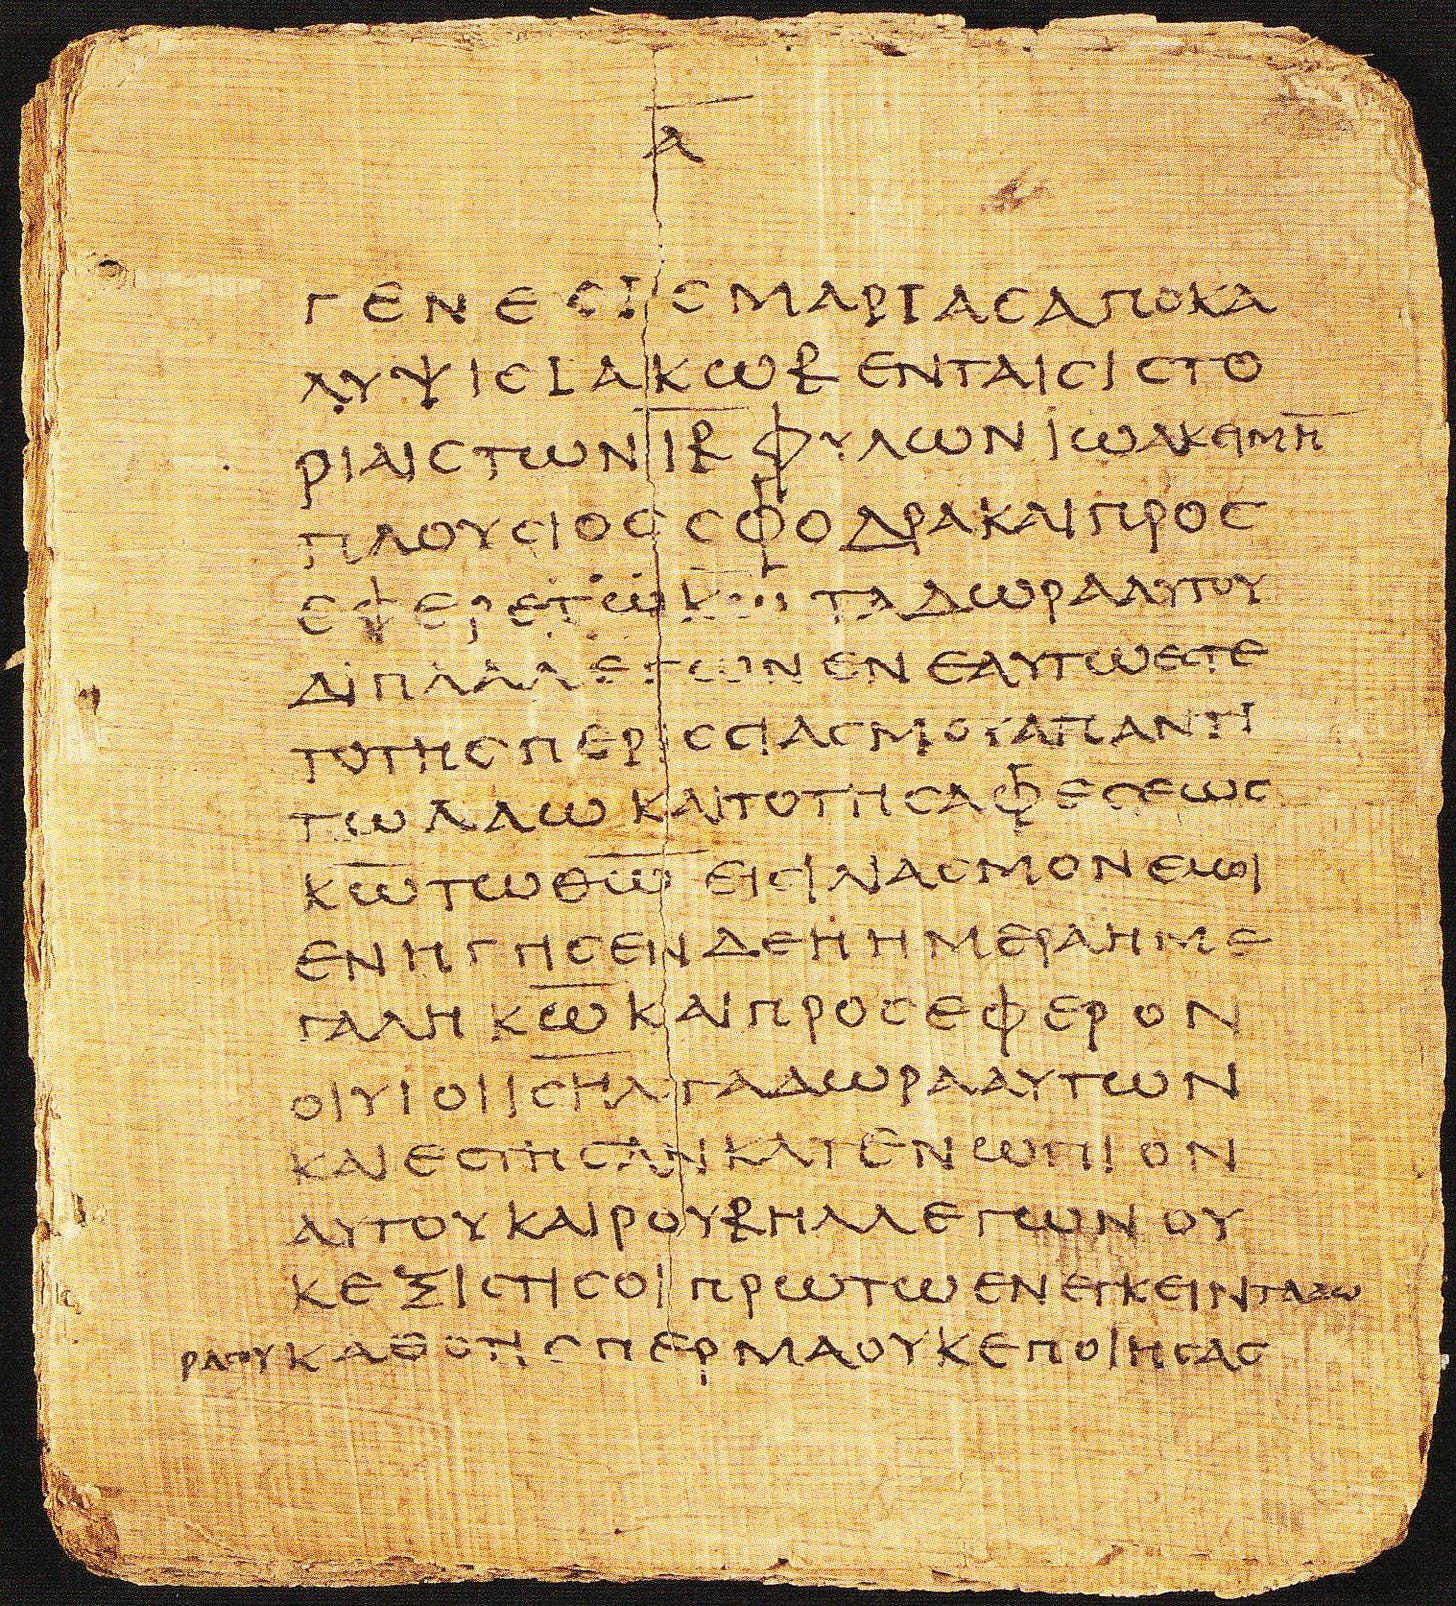 Α̅
ΓΕΝΕϹΙϹ ΜΑΡΙΑϹ ΑΠΟΚΑ
ΛΥΨΙϹ ΙΑΚΩΒ ΕΝ ΤΑΙϹ ΙϹΤΟ
ΡΙΑΙϹ ΤΩΝ Ι̅Β̅ ΦΥΛΩΝ ΙΩΑΚΕΙΜ Η͞
ΠΛΟΥϹΙΟϹ ϹΦΟΔΡΑ ΚΑΙ ΠΡΟϹ
ΕΦΕΡΕ ΤΩ ΤΑ ΔΩΡΑ ΑΥΤΟΥ
ΔΙΠΛΑ ΛΕΓΩΝ ΕΝ ΕΑΥΤΩ ΕϹΤΕ
ΤΟ ΤΗϹ ΠΕΡΙϹϹΙΑϹ ΜΟΥ ΑΠΑΝΤΙ
ΤΩ ΛΑΩ ΚΑΙ ΤΟ ΤΗϹ ΑΦΕϹΕΩϹ
Κ̅Ω̅ ΤΩ Θ̅Ω̅ ΕΙϹ ΙΛΑϹΜΟΝ ΕΜΟΙ
ΕΝΗΓΗϹΕΝ ΔΕ Η ΗΜΕΡΑ Η ΜΕ
ΓΑΛΗ Κ̅Ω̅ ΚΑΙ ΠΡΟϹΕΦΕΡΟΝ
ΟΙ ΥΙΟΙ Ι̅Ϲ̅Η̅Λ̅ ΤΑ ΔΩΡΑ ΑΥΤΩΝ
ΚΑΙ ΕϹΤΗϹΑΝ ΚΑΤΕΝΩΠΙΟΝ
ΑΥΤΟΥ ΚΑΙ ΡΟΥΒΗΛ ΛΕΓΩΝ ΟΥ
Κ ΕΞΙϹΤΙ ϹΟΙ ΠΡΩΤΩ ΕΝΕΓΚΕΙΝ ΤΑ ΔΩ
ΡΑ ϹΟΥ ΚΑΘΟΤΙ ϹΠΕΡΜΑ ΟΥΚ ΕΠΟΙΗϹΑϹ